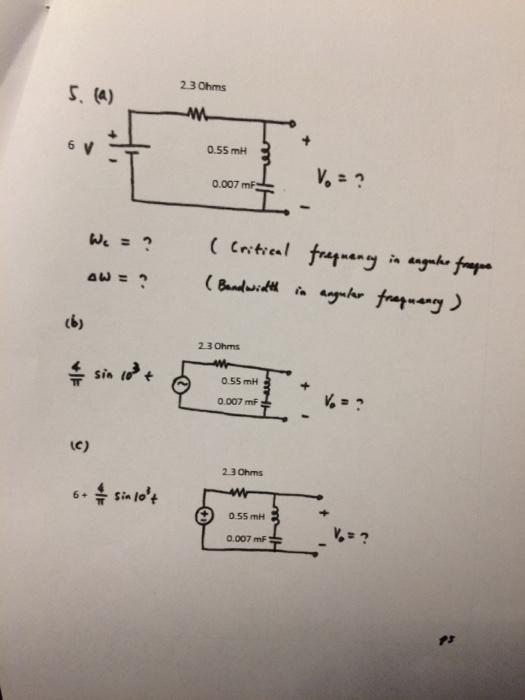 5. (a)
2.3 Ohms
+
6 V
-
0.55 mH
0.007 mF
+
V₀ = ?
-
Wc = ? (Critical frequency in angular freque
ΔW = ? (Bandwidth in angular frequency)
(b)
2.3 Ohms
4/π sin 10³ t
0.55 mH
0.007 mF
+
V₀ = ?
-
(c)
2.3 Ohms
6 + 4/π sin 10³t
+
-
0.55 mH
0.007 mF
+
V₀ = ?
-
P5